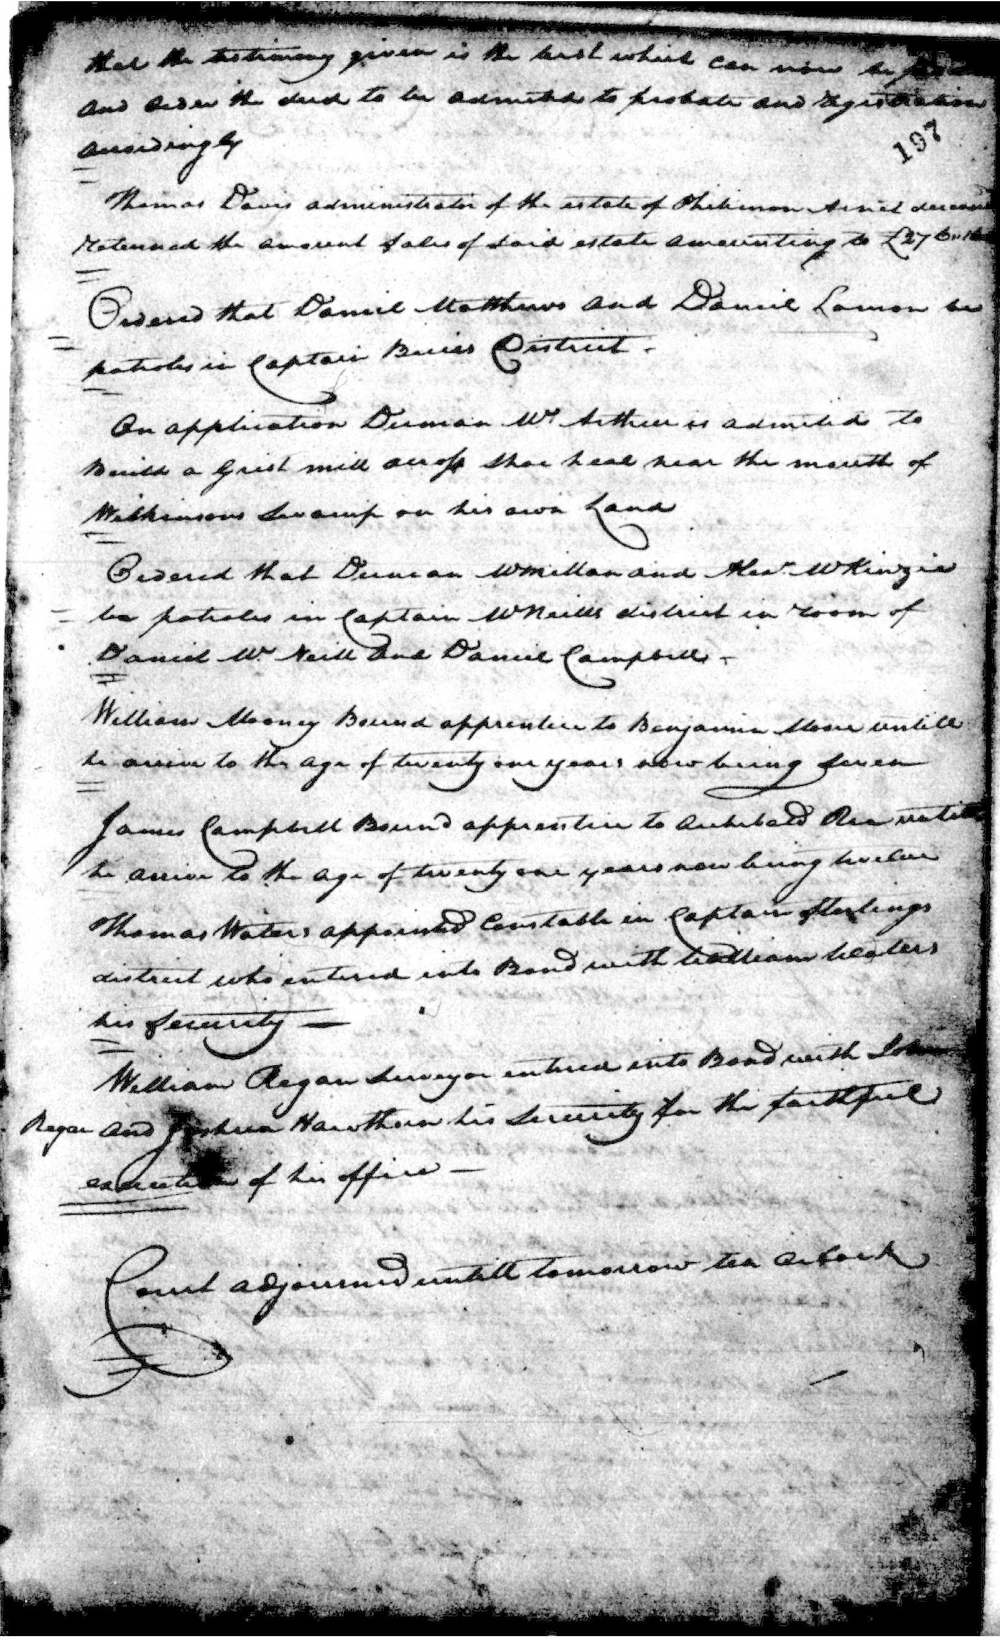 that the testimony given is the best which can now be
and order the deed to be admitted to probate and registration
accordingly
197
Thomas Davis administrator of the estate of Philemon deceased
Returned the amount Sales of said estate amounting to £27
Ordered that Daniel Matthews and Daniel Lamon be
patroles in Captain Buies District -
On application Duncan Mc Arthur is admited to
Build a Grist mill across Shoe heal near the mouth of
Wilkinsons Swamp on his own Land
Ordered that Duncan McMillan and Alexr McKinzie
be patroles in Captain McNeills district in room of
Daniel Mc Neill and Daniel Campbell -
William Mooney Bound apprentice to Benjamin Moore untill
he arive to the age of twenty one years now being Seven
James Campbell Bound apprentice to Archibald Rea untill
he arrive to the age of twenty one years now being twelve
Thomas Waters appointed Constable in Captain Sterlings
district who entered into Bond with William Waters
his Security —
William Regan Surveyor entered into Bond with John
Regan and Joshua Hawthorn his Security for the faithful
execution of his office —
Court adjourned untill tomorrow ten oclock